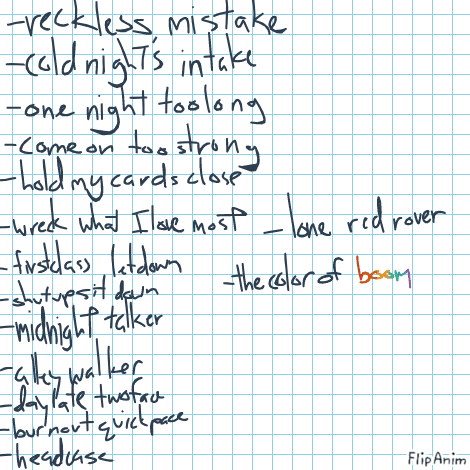 -reckless mistake
-cold night's intake
-one night too long
-come on too strong
-hold my cards close
-wreck what I love most
-firstclass letdown
-shutup sit down
-midnight talker
-alley walker
-daylate twoface
-burnout quickpace
-headcase
-lone red rover
-the color of boom
FlipAnim